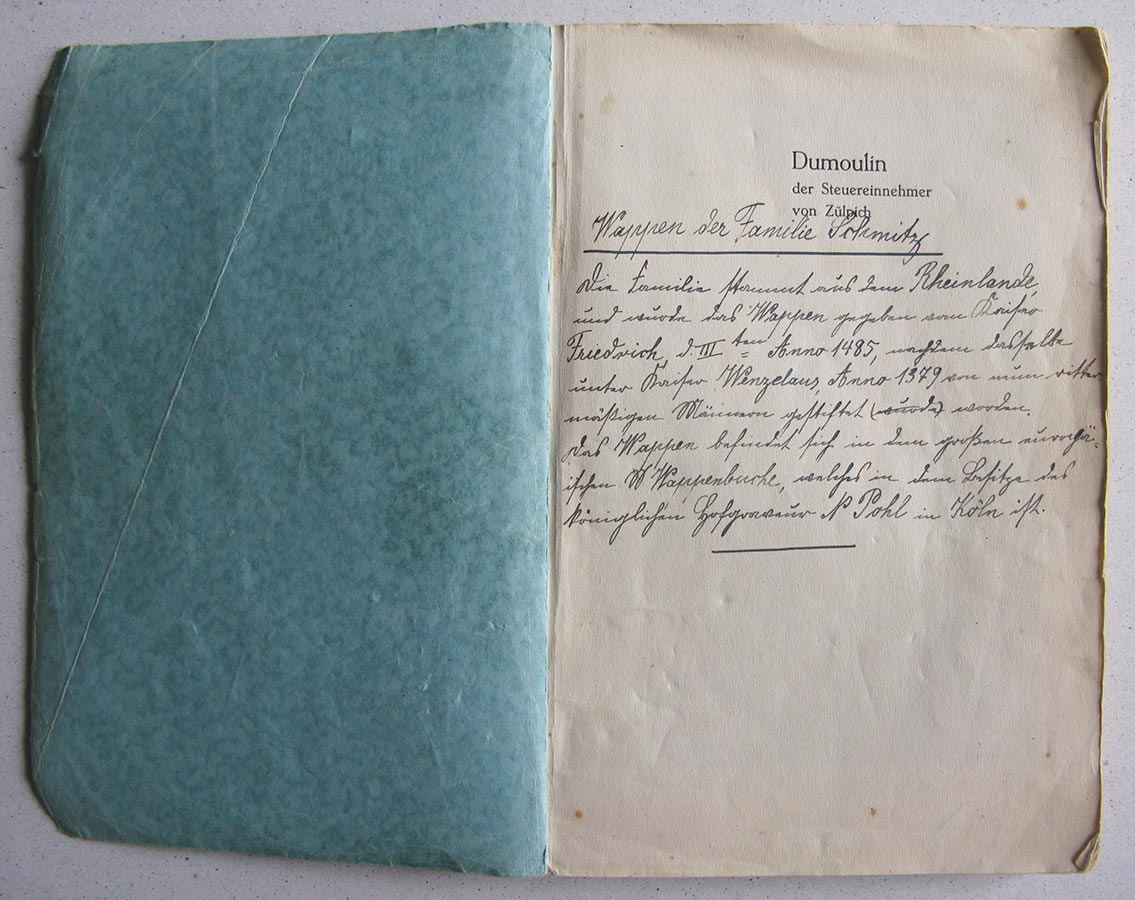 Dumoulin
der Steuereinnehmer
von Zülpich
Wappen der Familie Schmitz
Die Familie stammt aus dem Rheinlande,
und wurde das Wappen gegeben vom Kaiser
Friedrich, d. III ten Anno 1485, nachdem dasselbe
unter Kaiser Wenzelaus, Anno 1379 von neun ritter
mäßigen Männern gestiftet (wurde) worden.
Das Wappen befindet sich in dem großen europä-
ischen Wappenbuche, welches in dem Besitze des
königlichen Hofgraveur N Pohl in Köln ist.